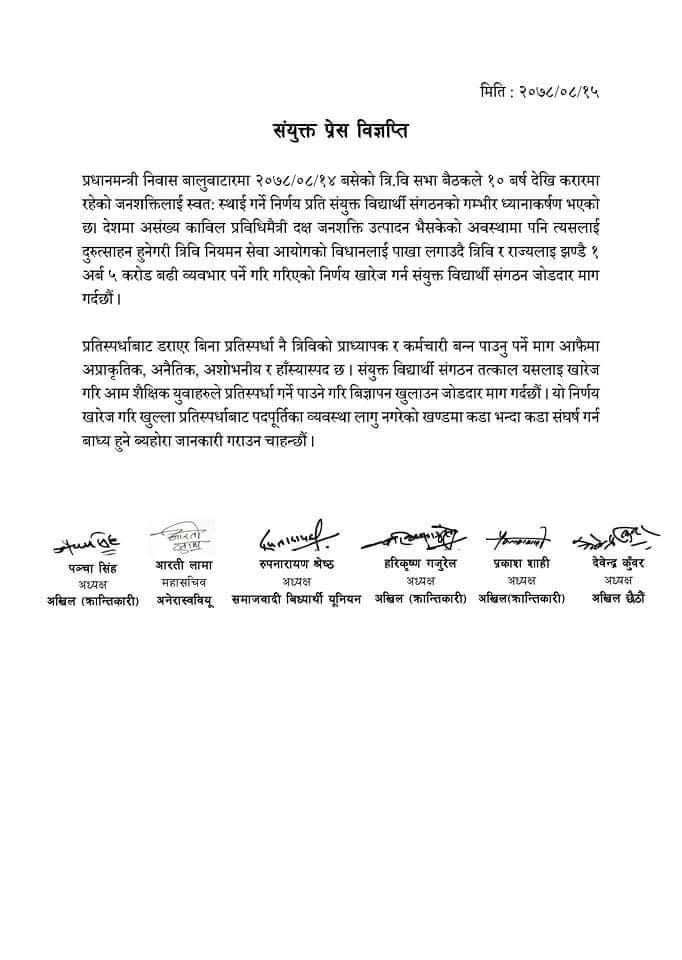 मिति : २०७८/०८/१५
संयुक्त प्रेस विज्ञप्ति
प्रधानमन्त्री निवास बालुवाटारमा २०७८/०८/१४ बसेको त्रि.वि सभा बैठकले १० बर्ष देखि करारमा
रहेको जनशक्तिलाई स्वत: स्थाई गर्ने निर्णय प्रति संयुक्त विद्यार्थी संगठनको गम्भीर ध्यानाकर्षण भएको
छ। देशमा असंख्य काविल प्रविधिमैत्री दक्ष जनशक्ति उत्पादन भैसकेको अवस्थामा पनि त्यसलाई
दुरुत्साहन हुनेगरी त्रिवि नियमन सेवा आयोगको विधानलाई पाखा लगाउदै त्रिवि र राज्यलाइ झण्डै १
अर्ब ५ करोड बढी व्यवभार पर्ने गरि गरिएको निर्णय खारेज गर्न संयुक्त विद्यार्थी संगठन जोडदार माग
गर्दछौं ।
प्रतिस्पर्धाबाट डराएर बिना प्रतिस्पर्धा नै त्रिविको प्राध्यापक र कर्मचारी बन्न पाउनु पर्ने माग आफैमा
अप्राकृतिक, अनैतिक, अशोभनीय र हाँस्यास्पद छ । संयुक्त विद्यार्थी संगठन तत्काल यसलाइ खारेज
गरि आम शैक्षिक युवाहरुले प्रतिस्पर्धा गर्ने पाउने गरि बिज्ञापन खुलाउन जोडदार माग गर्दछौं । यो निर्णय
खारेज गरि खुल्ला प्रतिस्पर्धाबाट पदपूर्तिका व्यवस्था लागु नगरेको खण्डमा कडा भन्दा कडा संघर्ष गर्न
बाध्य हुने ब्यहोरा जानकारी गराउन चाहन्छौं ।
आरती
लामा
पञ्चा सिंह आरती लामा रुपनारायण श्रेष्ठ हरिकृष्ण गजुरेल प्रकाश शाही देवेन्द्र कुँवर
अध्यक्ष महासचिव अध्यक्ष अध्यक्ष अध्यक्ष अध्यक्ष
अखिल (क्रान्तिकारी) अनेरास्ववियू समाजवादी बिध्यार्थी यूनियन अखिल (क्रान्तिकारी) अखिल(क्रान्तिकारी) अखिल छैठौं